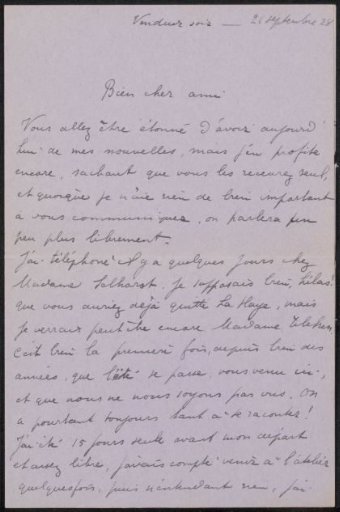 Vendredi soir — 26 septembre 28
Bien cher ami
Vous allez être étonné d'avoir aujourd'
hui de mes nouvelles, mais j'en profite
encore, sachant que vous les recevrez seul,
et quoique je n'aie rien de bien important
a vous communiquer, on parlera un
peu plus librement.
J'ai téléphoné il y a quelques jours chez
Madame je supposais bien, hélas!
que vous auriez déjà quitté La Haye, mais
je verrais peut être encore Madame
C'est bien la première fois, depuis bien des
années, que l'été se passe, vous venu ici,
et que nous ne nous soyons pas vus. On
a pourtant toujours tant à se raconter!
J'ai été 15 jours seule avant mon départ
et assez libre, j'avais compté venir à l'atelier
quelquesfois, puis n'entendant rien, j'ai